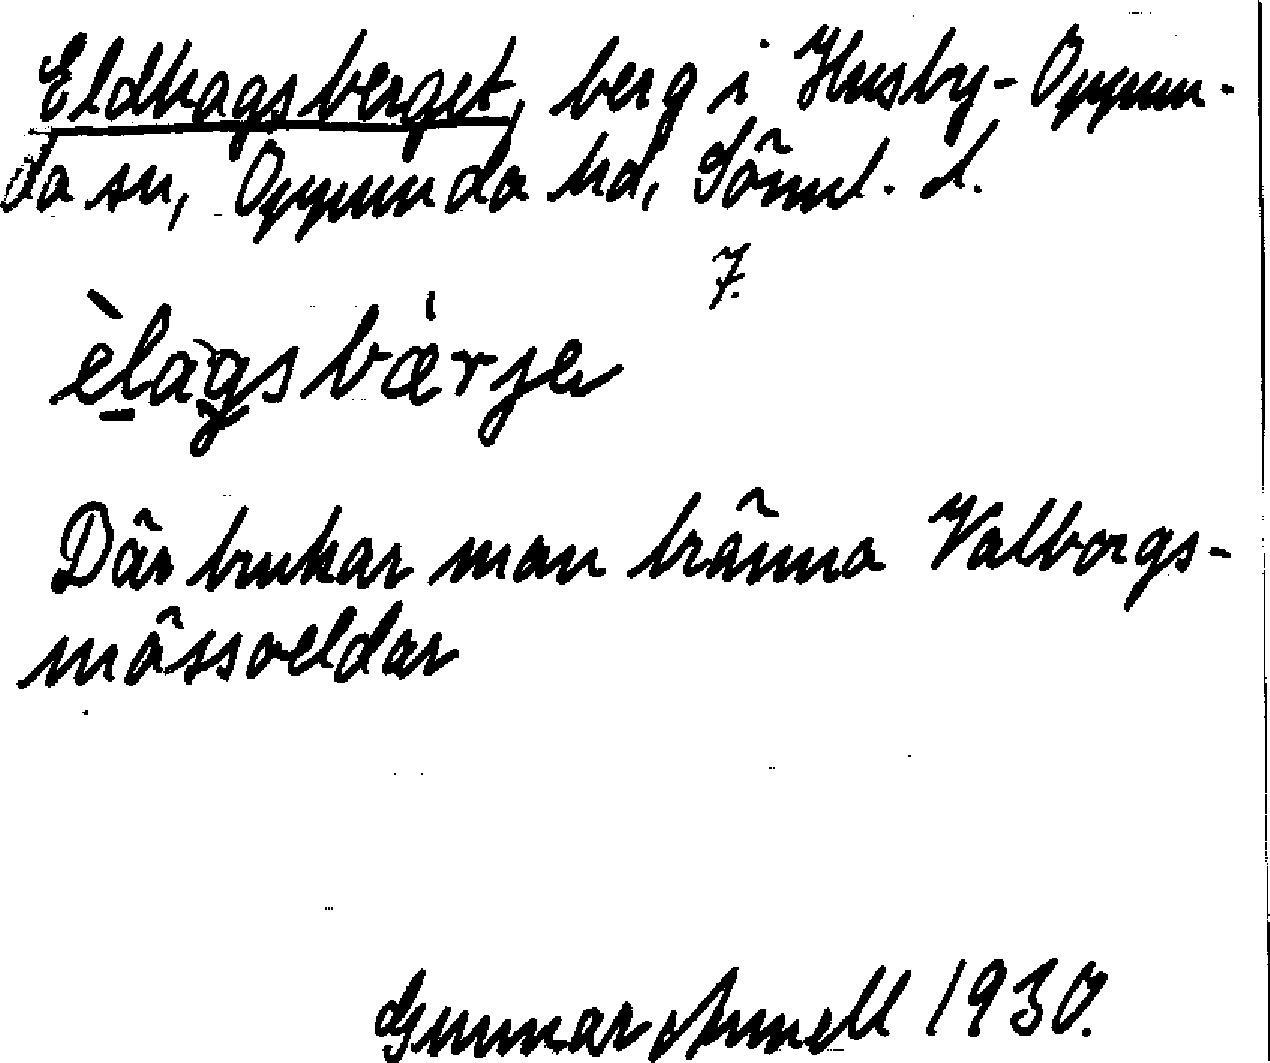 Eldhagsberget, berg i Husby-Oppun-
da sn, Oppunda hd, Söml. l.
7.
èlagsbærje
Där brukar man bränna Valborgs-
mässoeldar
Gunnar Arnell 1930.